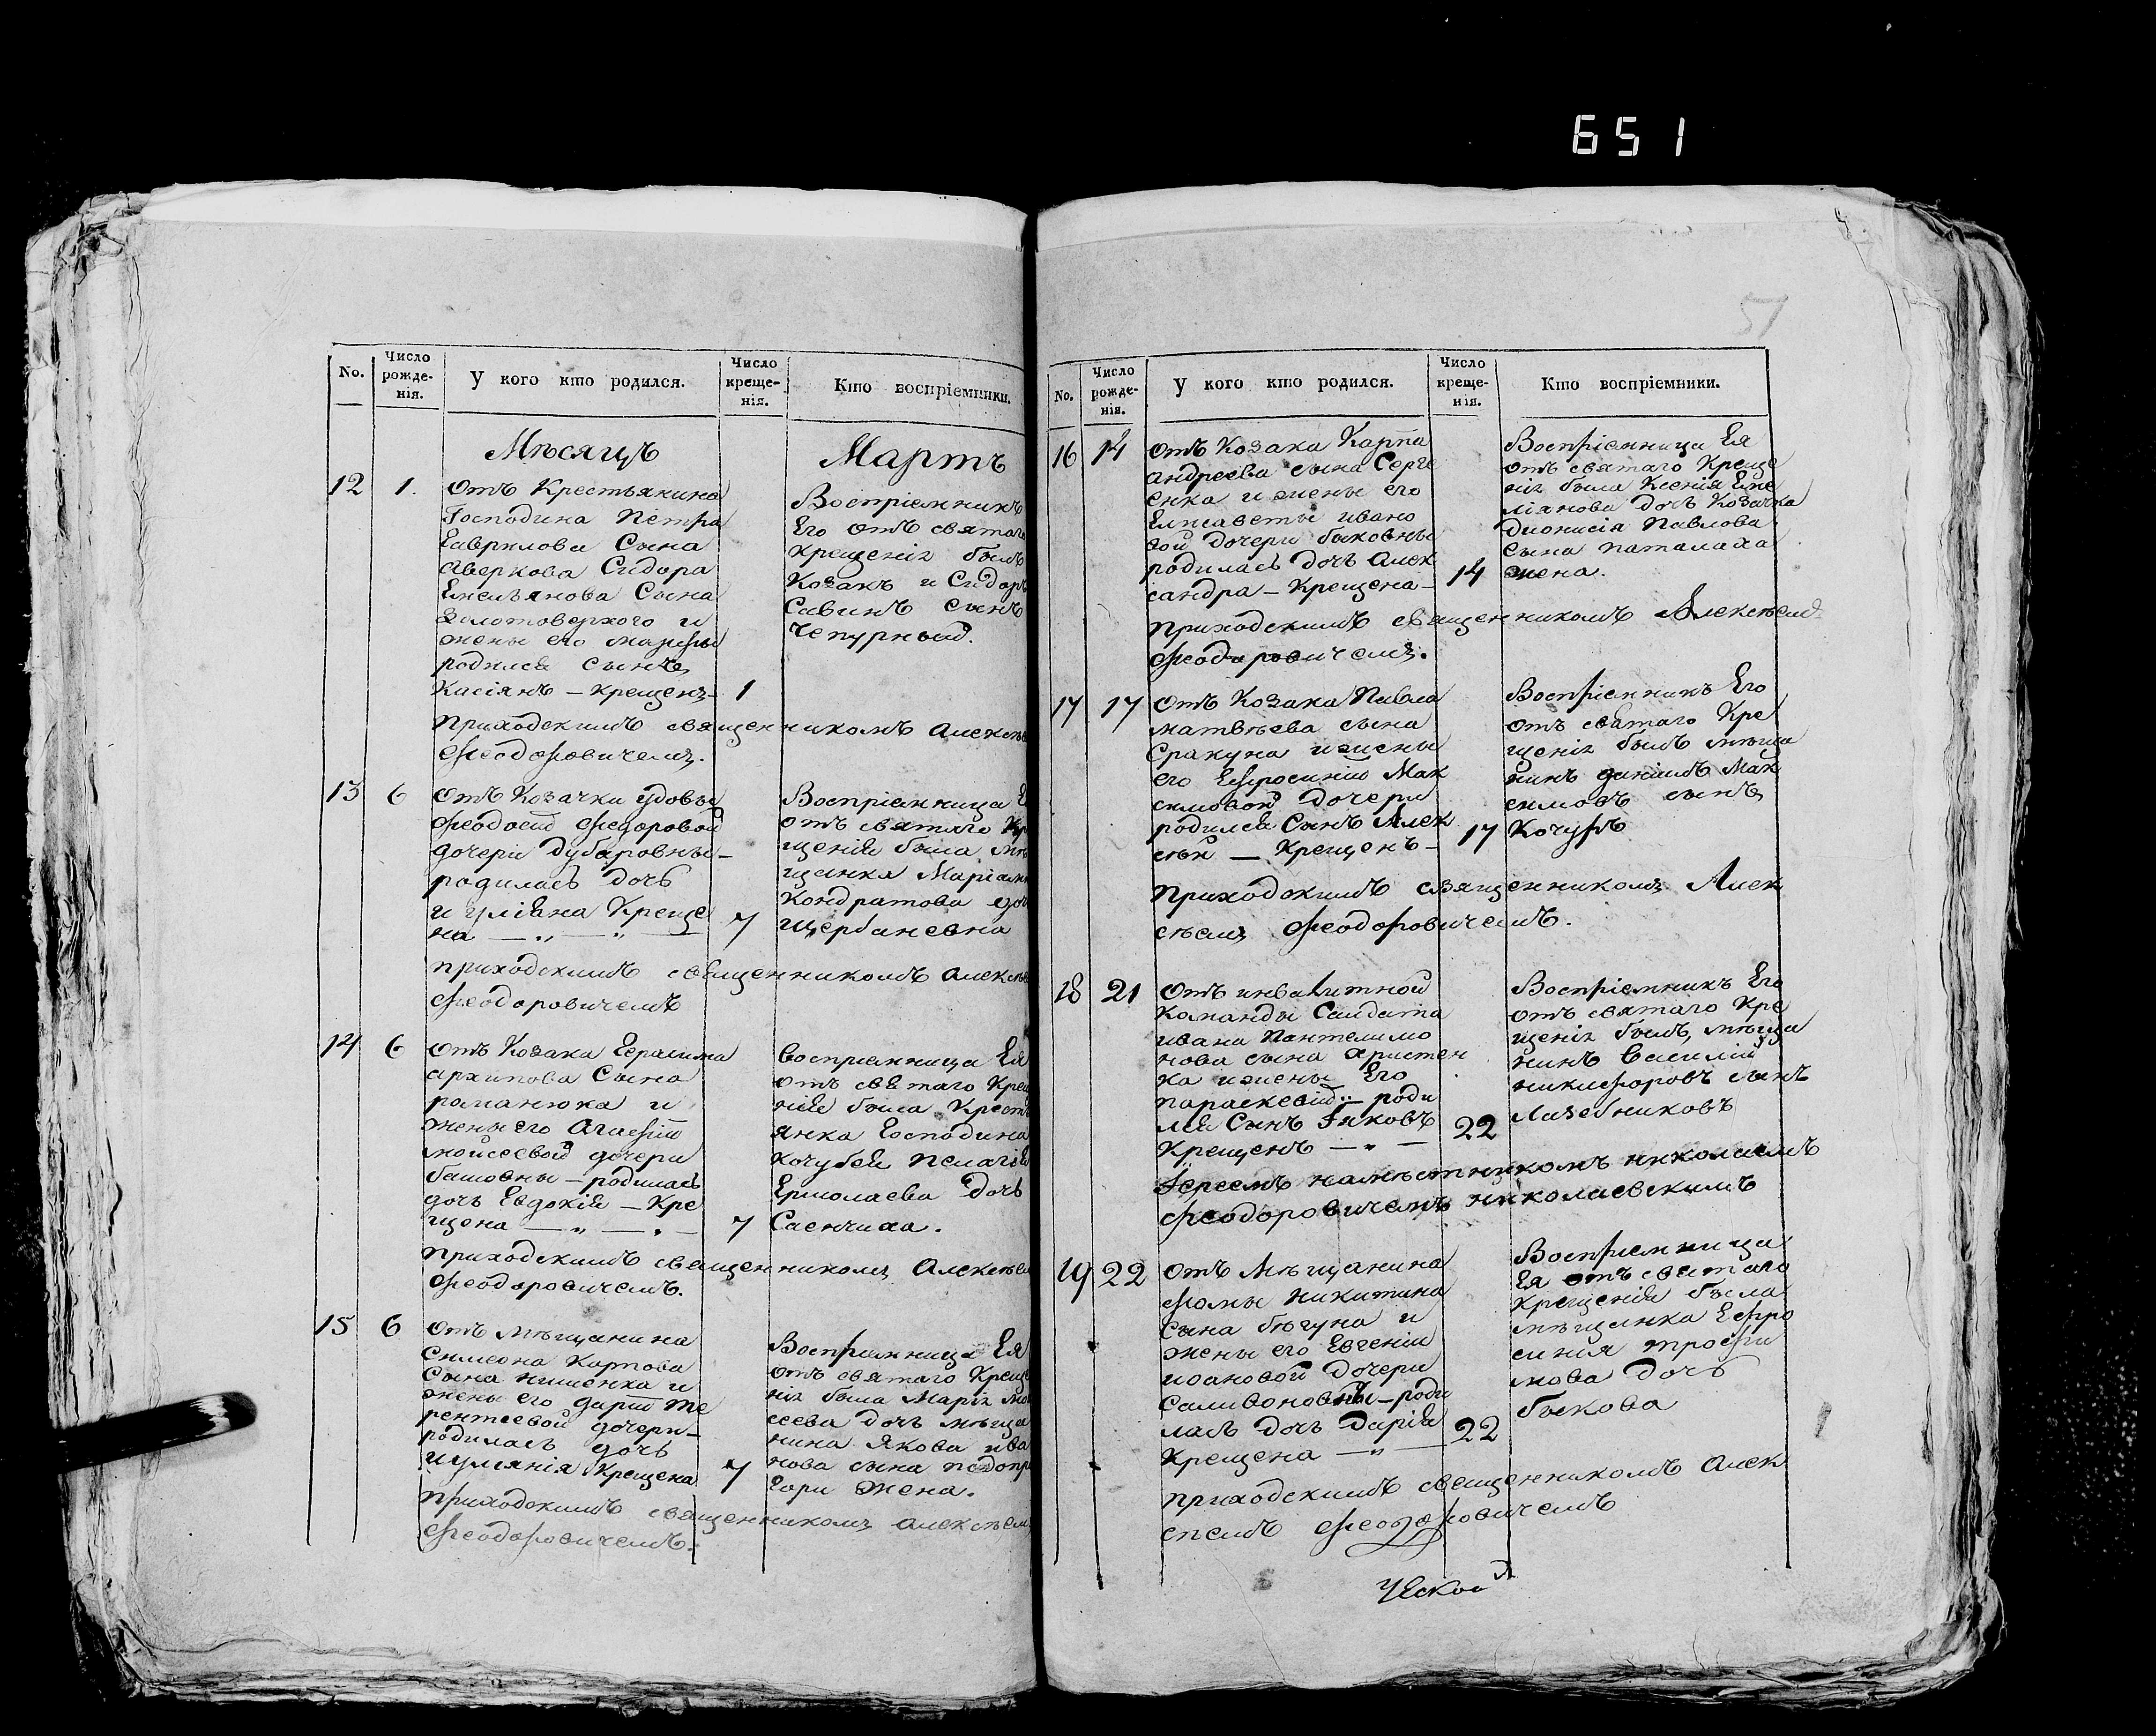 651
51
No.
Число рожде- нія.
У кого кто родился.
Число креще- нія.
Кто воспріемники.
Мѣсяцъ Мартъ
12 1.
отъ Крестьянина
Господина Петра
Гаврилова Сына
Аверкова Сидора
Емельянова Сына
Золотоверхого и
жены его
родился сынъ
Касіянъ – крещенъ – 1
Воспріемникъ
Его отъ святаго
крещенія былъ
Козакъ и Сидоръ
Савинъ сынъ
Чепурный.
приходскимъ священникомъ Алексѣе
Феодоровичемъ.
13 6
отъ Козачки удовы
Феодосіи Федоровой
дочери Дубаровны –
родилась дочь
иуліяна Креще
на — „ — „ — 7
Воспріемница Е
отъ святаго Кр
щенія была мѣ
щанка Маріан
Кондратова доч
Щербаневна
приходскимъ священникомъ Алексѣе
Феодоровичемъ
14 6
отъ Козака Герасима
архипова Сына
романюка и
жены его Агафіи
мойсеевой дочери
башовны – родилась
дочь Евдокія – Кре
щена — „ — „ — 7
Воспріемница Ея
отъ святаго Крещ
нія была Крест
янка Господина
Кочубея Пелагія
Ермолаева дочь
Саенчиха.
приходскимъ священникомъ Алексѣем
Феодоровичемъ.
15 6
отъ мѣщанина
Симеона Карпова
Сына нишенка и
жены его даріи Те
рентеевой дочери –
родилась дочь
иуліянія Крещена 7
Воспріемница Ея
отъ святаго Креще
нія была Марія мо
сеева дочь мѣща
нина Якова ива
нова сына подопр
гори жена.
приходскимъ священникомъ алексѣем
Феодоровичемъ.
No.
Число рожде- нія.
У кого кто родился.
Число креще- нія.
Кто воспріемники.
16 14
отъ Козака Карпа
андреева сына Серге
енка и жены его
Елисаветы ивано
вой дочери быковны
родилась дочь Алек
сандра – Крещена – 14
Воспріемница Ея
отъ святаго Креще
нія была Ксенія Еме
ліянова дочь Козачка
Дионисія Павлова
сына паталаха
жена.
приходскимъ священникомъ Алексѣемъ
Феодоровичемъ.
17 17
отъ Козака Павла
матвѣева сына
Сракуна и жены
его Ефросиніи Мак
симовой дочери
родился Сынъ Алек
сѣй — Крещенъ – 17
Воспріемникъ Его
отъ святаго Кре
щенія былъ мѣща
нинъ даніилъ Мак
симовъ сынъ
Кочуръ
приходскимъ священникомъ Алек
сѣемъ Феодоровичемъ.
18 21
отъ инвалитной
Команды Салдата
ивана Пантелимо
нова сына христен
ка и жены Его
параскевіи – роди
лся Сынъ Іяковъ
Крещенъ — „ — 22
Воспріемникъ Его
отъ святаго Кре
щенія былъ, мѣща
нинъ Василій
никифоровъ сынъ
Лазебниковъ
Іереемъ намѣстникомъ николаемъ
Феодоровичемъ николаевскимъ
19 22
отъ Мѣщанина
Фомы никитина
сына бѣгуна и
жены его Евгеніи
иоановой дочери
Саливоновны – роди
лась дочь Дарія
крещена — „ — 22
Воспріемница
Ея отъ святаго
крещенія была
мѣщанка Ефро
синія трофи
мова дочь
быкова
приходскимъ священникомъ алек
сѣемъ Феодоровичемъ
ческой